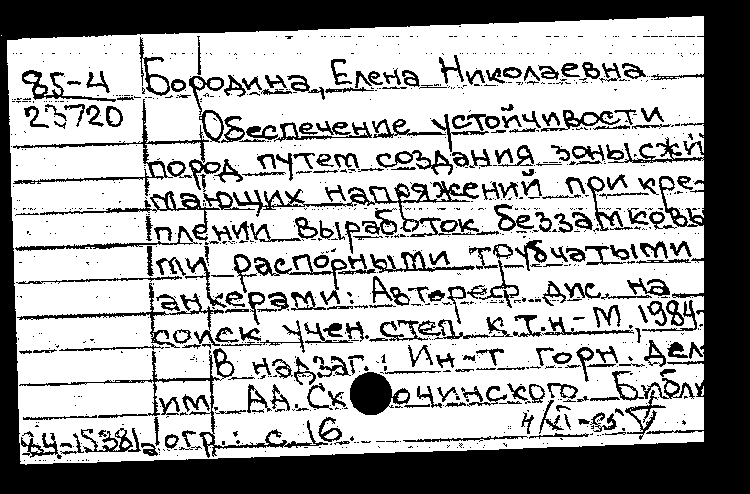 85-4
23720
Бородина, Елена Николаевна
Обеспечение устойчивости
пород путем создания зоны сжи
мающих напряжений при кре-
плении выработок беззамковы
ми распорными трубчатыми
анкерами: Автореф. дис. на
соиск. учен. степ. к.т.н.-М., 1984.
В надзаг.: Ин-т горн. дел
им. А.А. Ск очинского. Библи
огр.: с. 16.
4/XI-85
84-15381а